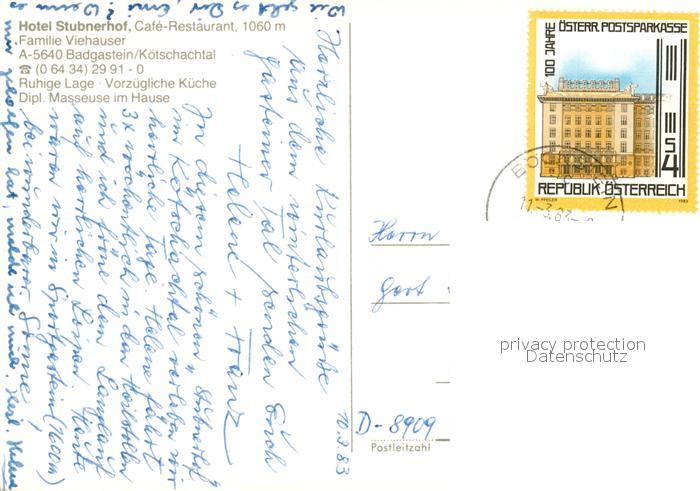 Hotel Stubnerhof, Café-Restaurant, 1060 m
Familie Viehauser
A-5640 Badgastein/Kötschachtal
☎ (0 64 34) 29 91 - 0
Ruhige Lage · Vorzügliche Küche
Dipl. Masseuse im Hause
10.3.83
Herzliche Urlaubsgrüße
aus dem winterlichen
Gasteiner Tal senden Euch
Helene + Franz
In diesem schönen Stubnerhof
im Kötschachtal verleben wir
herrliche Tage. Helene fährt
3x wöchentlich in den Heilstollen
und ich fröne dem Langlauf
auf herrlichen Loipen. Heute
waren wir in Sportgastein (1600m)
bei wunderbarer Sonne
Wie geht es
100 JAHRE
ÖSTERR. POSTSPARKASSE
S 4
REPUBLIK ÖSTERREICH
W. PFEILER
1983
Herrn
D-8909
Postleitzahl
privacy protection
Datenschutz